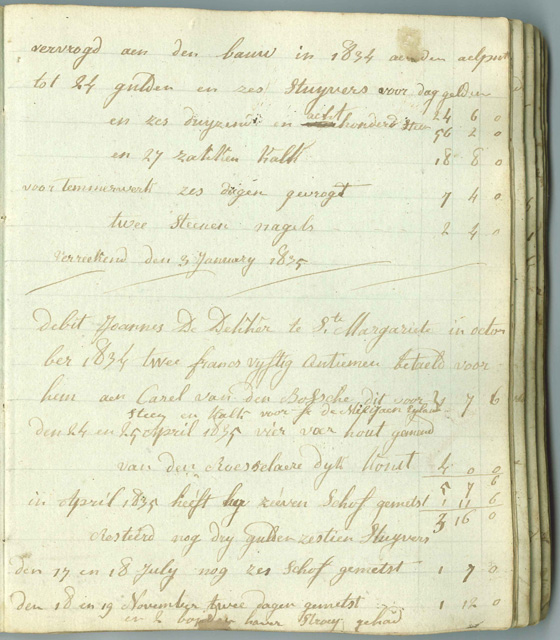 vervrogd aen den bauw in 1834 aen den aelput
tot 24 gulden en zes Stuyvers voor dag gelden
24 6 0
en zes duyzend en acht honderd steen 56 2 0
en 27 zakken kalk 18 8 0
voor temmerwerk zes dagen gevrogt 7 4 0
twee steenen nagels 2 4 0
Verrekend den 3 January 1835
Debit Joannes De Dekker te Ste Margariete in octo
ber 1834 twee francs vyftig Antiemen betaeld voor
hem aen Carel van den Bossche dit voor 1 7 6
Steen en Kalk voor
den 24 en 25 April 1835 vier voer hout gemend
van den Roesselaere dyk komt 4 0 0
5 7 6
in April 1835 heeft hy zeven Schof gemetst 1 11 6
3 16 0
Resteerd nog dry gulden zestien Stuyvers
den 17 en 18 July nog zes Schof gemetst 1 7 0
den 18 en 19 November twee dagen gemetst 1 12 0
en 2 bonden haver Strooy gehad